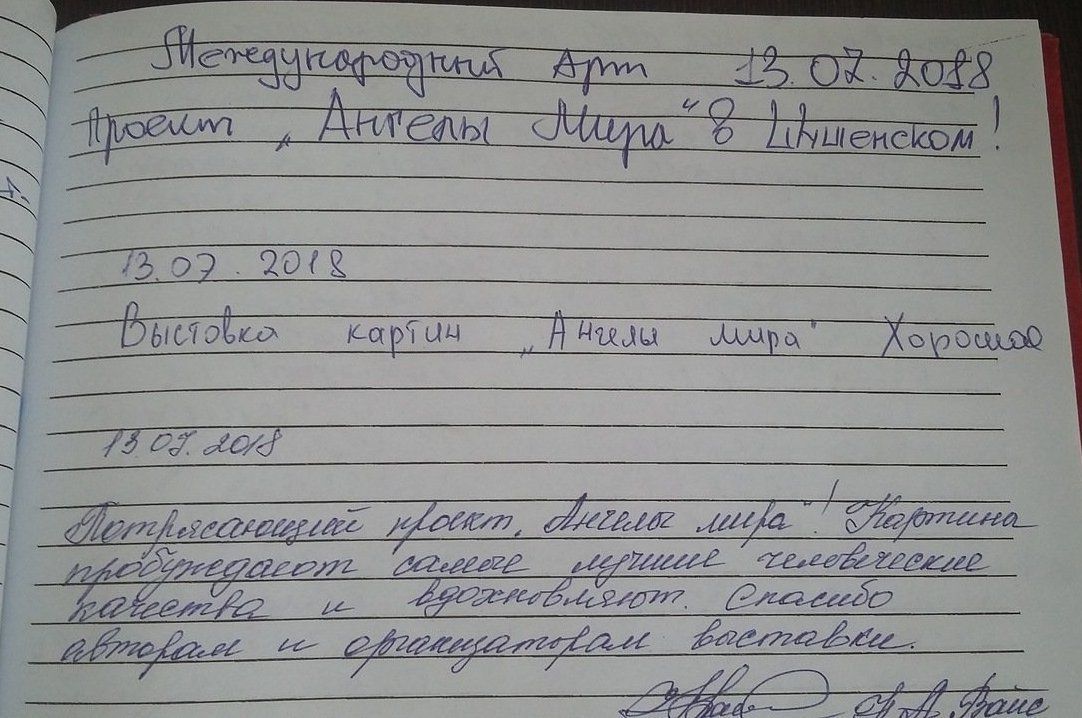 Международный Арт 13.07.2018
Проект „Ангелы Мира“ в Шушенском!
13.07.2018
Выстовка картин „Ангелы мира" Хорошае
13.07.2018
Потрясающий проект „Ангелы мира"! Картина
пробуждают самые лучшие человеческие
качества и вдохновляют. Спасибо
авторам и организаторам выставки.
Вайс